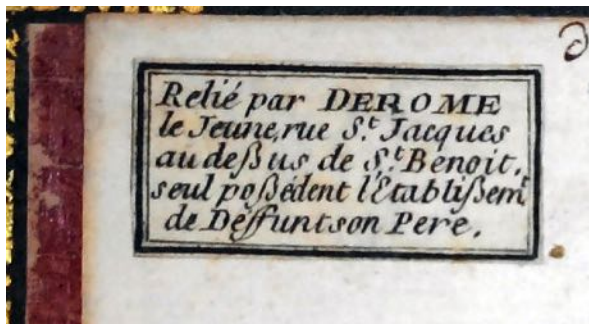 Relié par DEROME
le Jeune, rue S.t Jacques
au deßus de S.t Benoit,
seul poßédent l'Etablißem.t
de Deffunt son Pere.